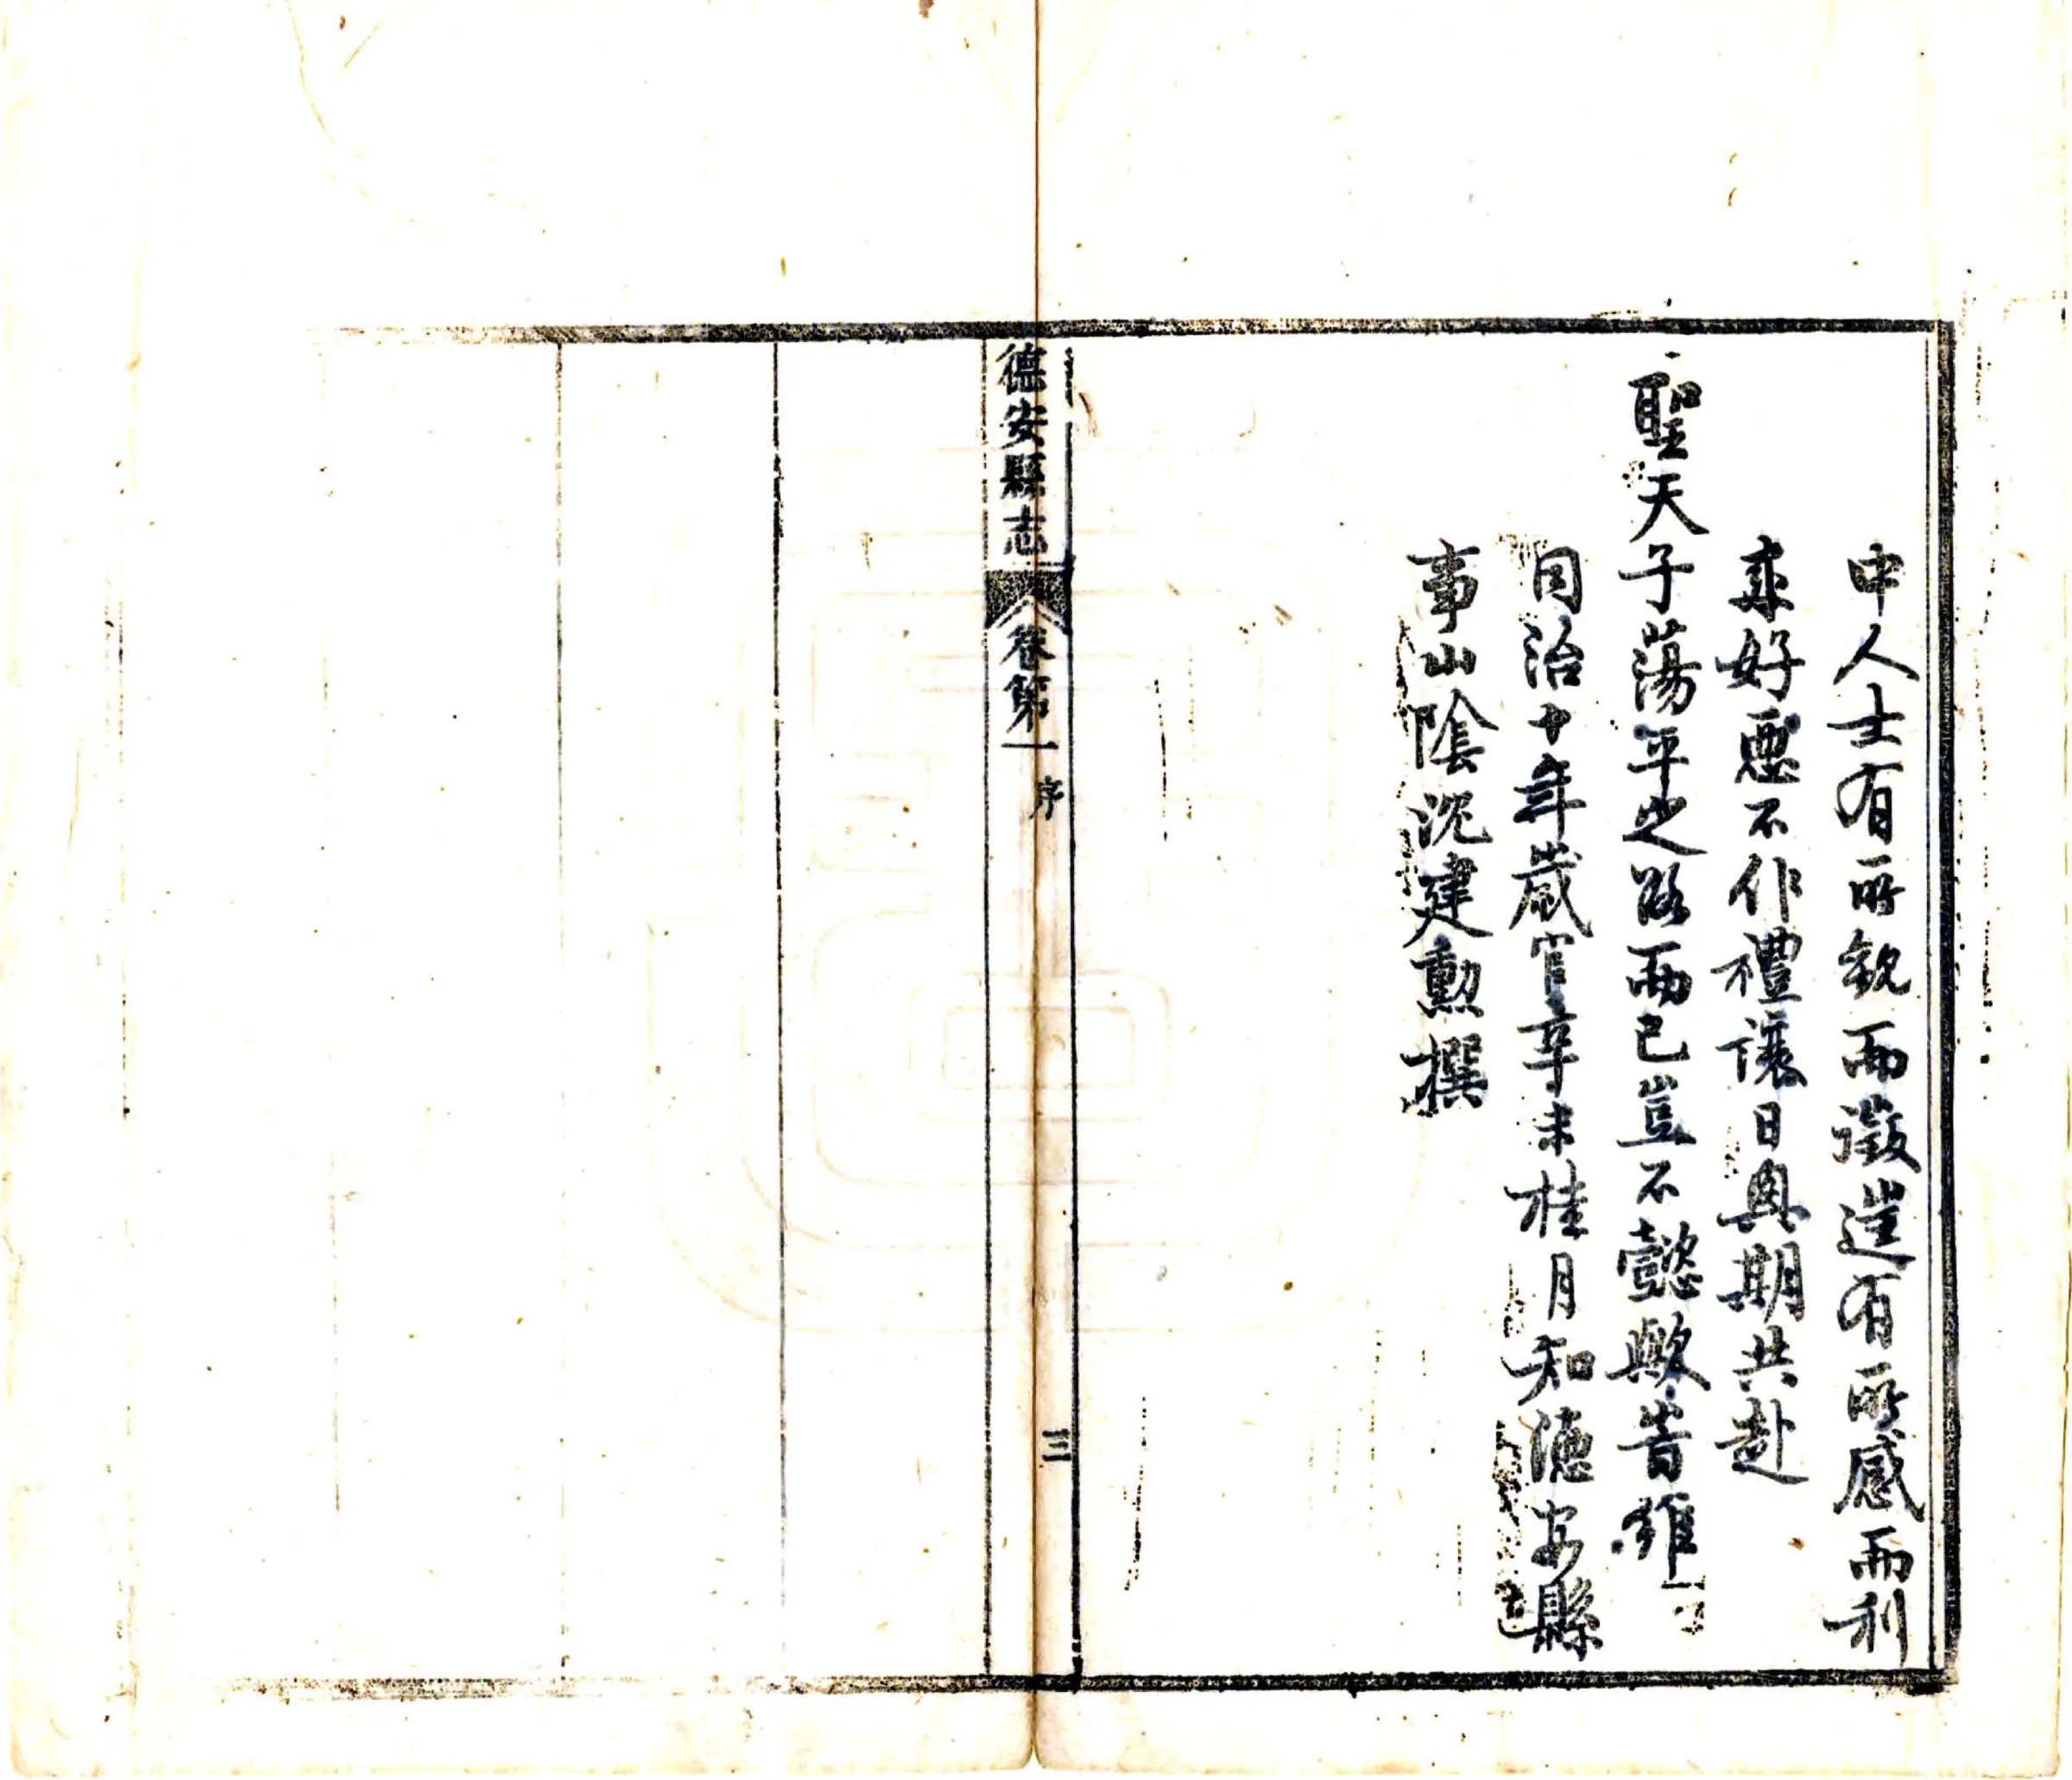 中人士有所觀而徵邁有所感而利
乘好惡不作禮讓日興期共赴
聖天子蕩平之路而已豈不懿歟豈不懿歟旹維
同治十年歲官辛未桂月知德安縣
事山陰沈建勲撰
德安縣志
卷第一
序
三